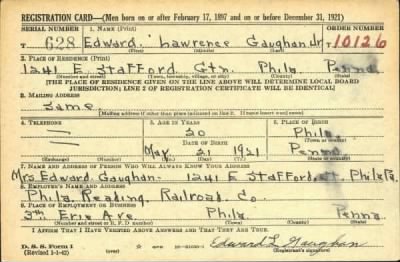 REGISTRATION CARD—(Men born on or after February 17, 1897 and on or before December 31, 1921)
SERIAL NUMBER 1. NAME (Print) ORDER NUMBER
T 628 Edward Lawrence Gaughan Jr. T 10126
(First) (Middle) (Last)
2. PLACE OF RESIDENCE (Print)
1241 E Stafford Gtn. Phila Penna
(Number and street) (Town, township, village, or city) (County) (State)
[THE PLACE OF RESIDENCE GIVEN ON THE LINE ABOVE WILL DETERMINE LOCAL BOARD
JURISDICTION; LINE 2 OF REGISTRATION CERTIFICATE WILL BE IDENTICAL]
3. MAILING ADDRESS
Same
[Mailing address if other than place indicated on line 2. If same insert word same]
4. TELEPHONE 5. AGE IN YEARS 6. PLACE OF BIRTH
— 20 Phila
DATE OF BIRTH (Town or county)
— May 21 1921 Penna
(Exchange) (Number) (Mo.) (Day) (Yr.) (State or country)
7. NAME AND ADDRESS OF PERSON WHO WILL ALWAYS KNOW YOUR ADDRESS
Mrs Edward Gaughan- 1241 E Stafford St Phila Pa
8. EMPLOYER'S NAME AND ADDRESS
Phila Reading Railroad Co.
9. PLACE OF EMPLOYMENT OR BUSINESS
Erie Ave Phila Penna
(Number and street or R. F. D. number) (Town) (County) (State)
I AFFIRM THAT I HAVE VERIFIED ABOVE ANSWERS AND THAT THEY ARE TRUE.
D. S. S. Form 1 Edward L Gaughan
(Revised 1-1-42) (over) (Registrant's signature)